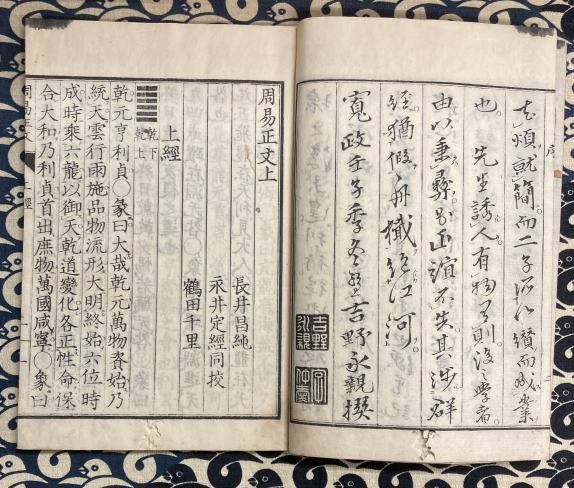 序
去煩就簡而二子所以續而成業
也先生誘人有物有則後學者
由以秉彝
不失其涉群
經猶假舟檝絶江河
寬政壬子季冬
吉野永親撰
周易正文上
長井昌純
永井定經同校
鶴田千里
上經
乾下
乾上
乾元亨利貞○彖曰大哉乾元萬物資始乃
統天雲行雨施品物流形大明終始六位時
成時乘六龍以御天乾道變化各正性命保
合大和乃利貞首出庶物萬國咸寧○象曰
周易
上經